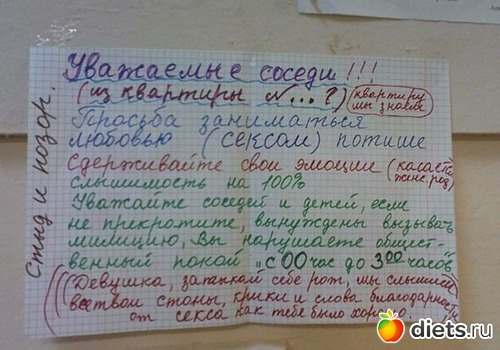 Уважаемые соседи!!!
(из квартиры №...?) (квартиру мы знаем)
Просьба заниматься
любовью (сексом) потише
Сдерживайте свои эмоции (касается женс. род)
слышимость на 100%
Уважайте соседей и детей, если
не прекратите, вынуждены вызывать
милицию, Вы нарушаете общест-
венный покой "с 00 час до 300 часов
(Девушка, затыкай себе рот, мы слышим
все твои стоны, крики и слова благодарности
от секса как тебе было хорошо.
Стыд и позор.
diets.ru